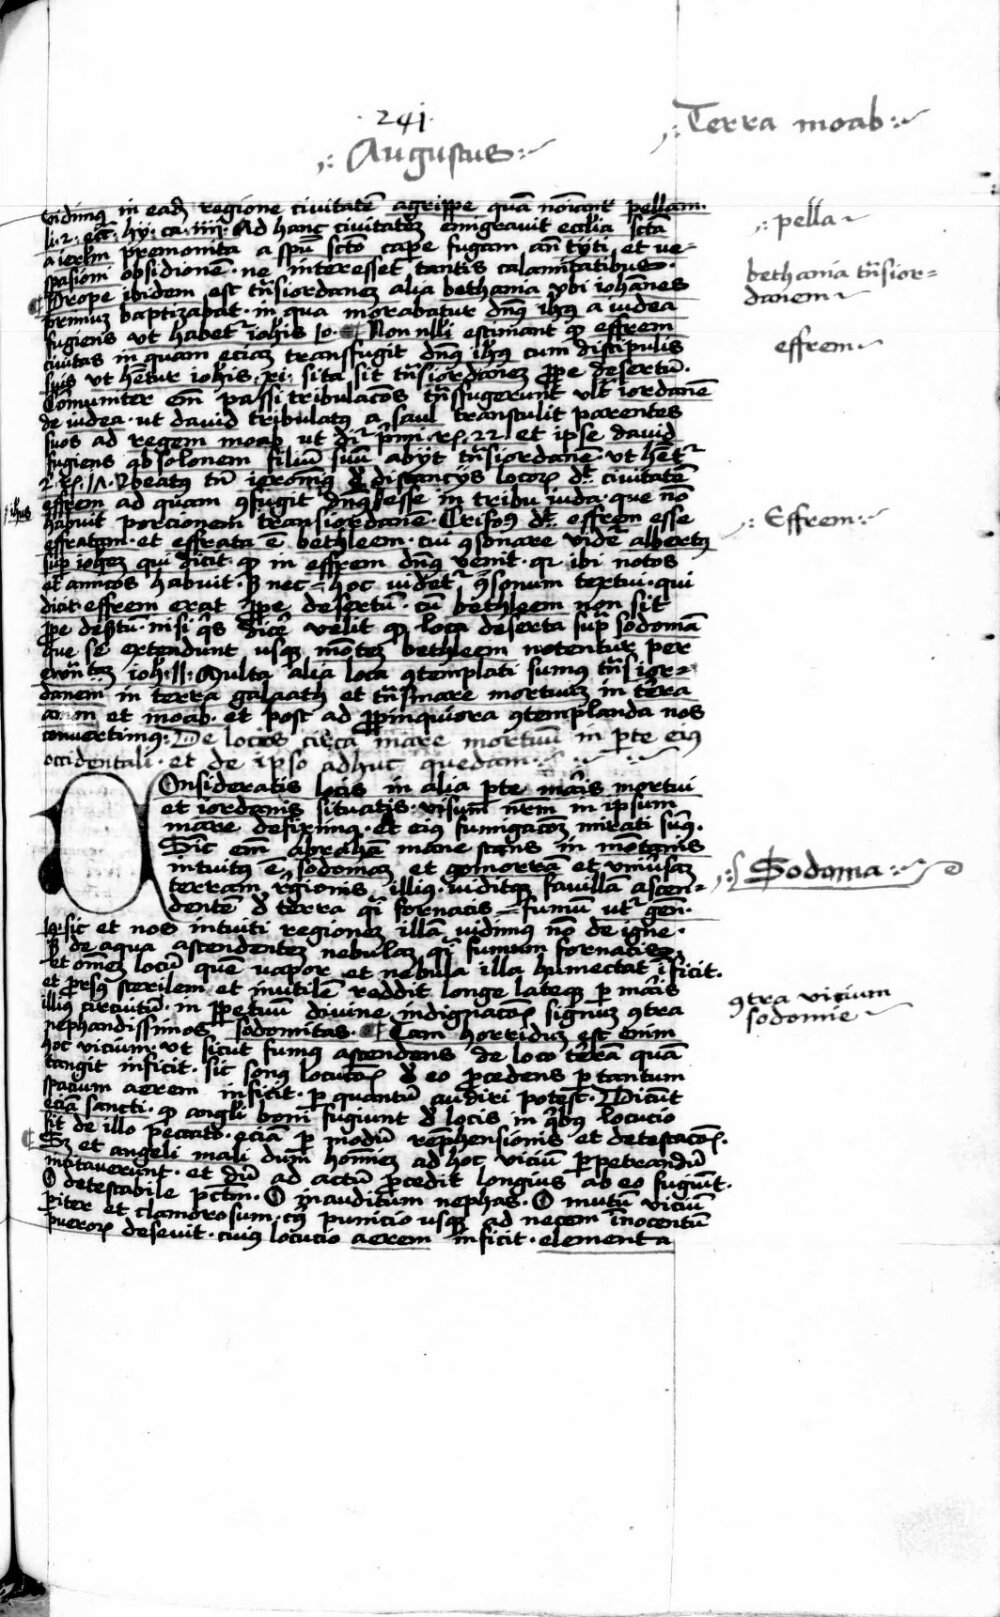 241
Terra moab
Augustus
vidimus in eadē regione civitatē agrippe quā noīant pellam.
li. 2. ecc̄. hy. ca. iiij. Ad hanc civitatem emigravit ecclia scta
a ierlm premonita a spū scto cape fugam an tyti et ve-
spasiani obsidionē. ne interesset tantis calamitatibus.
Prope ibidem est trāsiordanez alia bethania ubi iohannes
primuz baptizabat. in qua morabatur dnūs ihus a iudea
fugiens ut habetr iohīs 10. Non nlli estimant qp effrem
civitas in quam eciam transfugit dnūs ihus cum discipulis
suis ut hētur iohīs. xi. sita sit trāsiordanez ppe desertū.
Comuniter em̄ passi tribulacōes trāsfugerunt ult iordanē
de iudea. ut david tribulatus a saul transtulit parentes
suos ad regem moab ut dr p̄mi. rē. 22 et ipse david
fugiens absolonem filiū suū abyt trāsiordanē ut hetr
2. rē. 17. beatus tn̄ ieronimus de distancijs locorū dt civitatē
effrem ad quam 9fugit dnūs esse in tribu iuda. que nō
ihus
habuit porcionem transiordanē. Crisosus dt effrem esse
effratam. et effrata ē bethleem. cui 9sonare videt albertus
sup iohem qui dicit. qp in effrem dnūs venit. qr ibi notos
et amicos habuit. sz nec hoc videtr 9sonum textui. qui
dicit. effrem erat ppe desertū. cū bethleem non sit
ppe desertū. nisi quis dicē velit qp loca deserta sup sodomā
que se extendunt usque mōtem bethleem notentur per
iōh. 11. Multa alia loca 9templati sumus trāsior-
danem in terra galaath et trās mare mortuum in terra
amōn et moab. et post ad ppinquiora 9templanda nos
convertimus. De locis circa mare mortuū in pte eius
occidentali. et de ipso adhuc quedam.
Consideratis locis in alia pte maris mortui
et iordanis situatis. visum nrm in ipsum
mare defiximus. et eius fumigacōem mirati sumus.
Sic em̄ abrahā mane stans in montanis
intuitus ē sodomam et gomorrā et universam
terram regionis illius. viditque favillā ascen-
dentē de terra quasi fornacis fumū utr gen̄.
19. sic et nos intuiti regionem illā vidimus nō de igne.
sz de aqua ascendentem nebulam quasi fumum fornacis.
et omēz locū quē vapor et nebula illa humectat īficit.
et prsus sterilem et inutilē reddit longe lateque p maris
illius circuitū. in ppetuū divine indignacōis signum 9tra
nephandissimos sodomitas. Tam horridum est enim
hoc vicium. ut sicut fumus ascendens de loco terrā quā
tangit inficit. sic sonus locucōis de eo pcedens p tantum
spacium aerem inficit. p quantū audiri potest. Dicūt
eciā sancti. qp angli boni fugiunt de locis in qbus locucio
fit de illo peccato. eciā p modū rephensionis et detestacōis.
Sz et angeli mali dum homiēz ad hoc viciū ppetrandū
incitaverunt. et dū ad actū pcedit longius ab eo fugiūt.
O detestabile pctm. O inauditum nephas. O mutū viciū
piter et clamorosum. cuius punicio usque ad necem īnocentū
puerorū desevit. cuius locucio aerem inficit. elementa
pella
bethania trāsior=
danem
effrem
Effrem
Sodoma
9tra vicium
sodomie